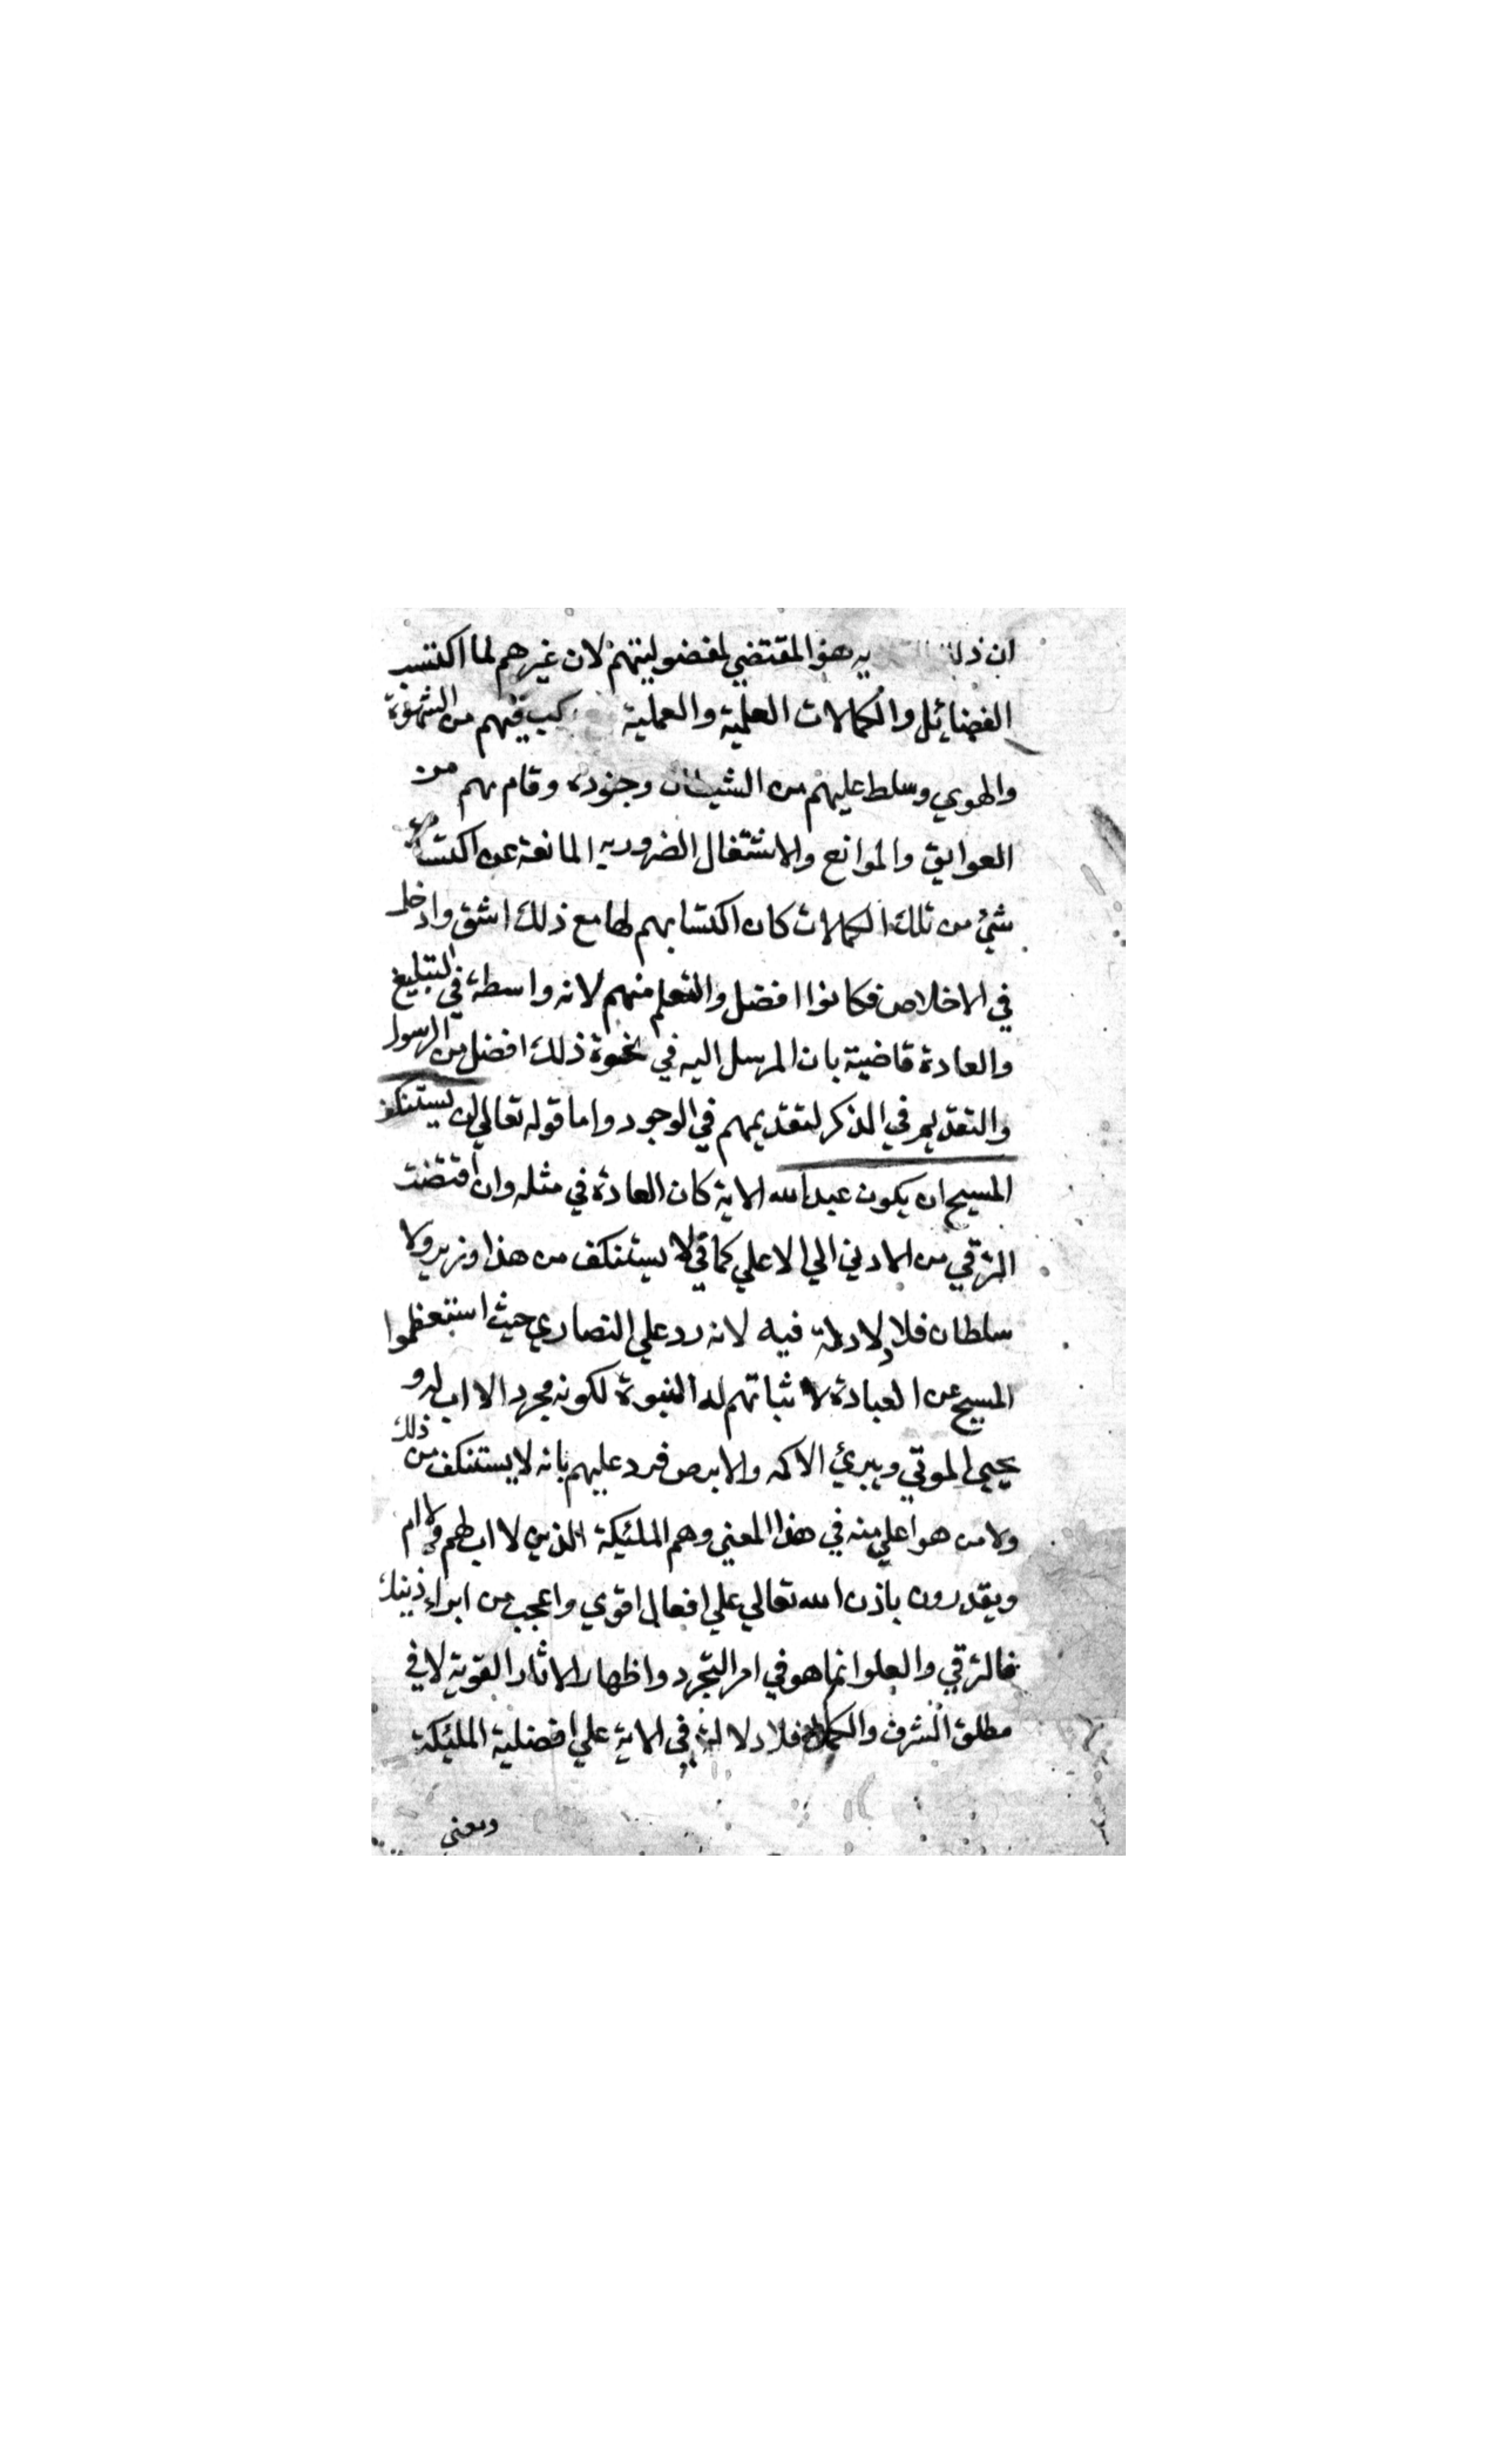 ان ذلك يه هو المقتضي لمفضوليتهم لان غيرهم لما اكتسب
الفضائل والكمالات العلمية والعملية كب فيهم من الشهوة
والهوي وسلط عليهم من الشيطان وجنوده وقام بهم من
العوايق والموانع والاشتغال الضروريه المانعة عن اكتساب
شئ من تلك الكمالات كان اكتسابهم لها مع ذلك اشق وادخل
في الاخلاص فكانوا افضل والتعلم منهم لانه واسطة في التبليغ
والعادة قاضية بان المرسل اليه في نحوة ذلك افضل من الرسول
والتقديم في الذكر لتقديمهم في الوجود واما قوله تعالي لن يستنكف
المسيح ان يكون عبدالله الاية كان العادة في مثله وان اقتضت
الترقي من الادني الي الاعلي كما في لا يستنكف من هذا وزير ولا
سلطان فلا دلادلة فيه لانه رد علي النصاري حيث استعظموا
المسيح عن العبادة لا ثباتهم له النبوة لكونه مجردالا اب له و
يحيي الموتي ويبرئ الاكمه والابرص فرد عليهم بانه لا يستنكف من ذلك
ولا من هو اعلي منه في هذا المعني وهم المليكة الذين لا اب لهم ولا ام
ويقدرون باذن الله تعالي علي افعال اقوي واعجب من ابراء ذينك
فالترقي والعلو انما هو في امر التجرد واظهار الاثار القوية لا في
مطلق الشرف والكمال فلا دلالة في الاية علي افضلية المليكة
ومعني